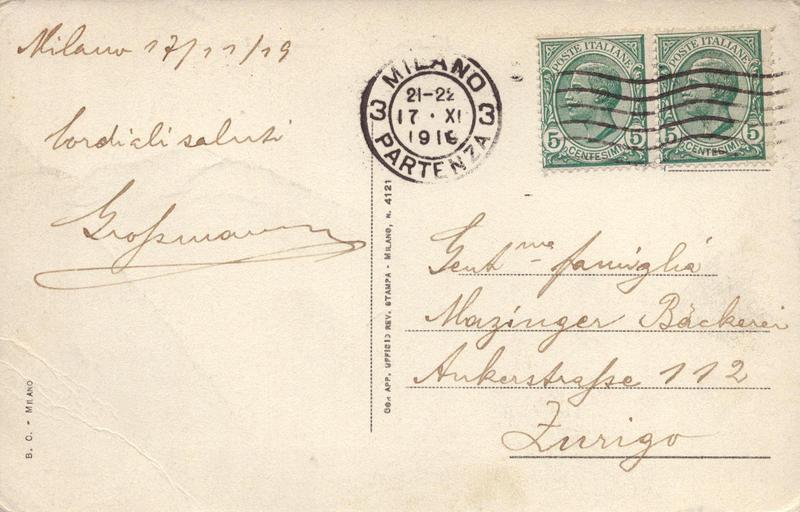 Milano 17/11/19
Cordiali saluti
Großmann
MILANO
3 3
21-22
17 · XI
1916
PARTENZA
POSTE ITALIANE
5 5
CENTESIMI
POSTE ITALIANE
5 5
CENTESIMI
Gent.me famiglia
Mazinger Bäckerei
Ankerstraße 112
Zurigo
APP. UFFICIO REV. STAMPA - MILANO, N. 4121
B. C. - MILANO